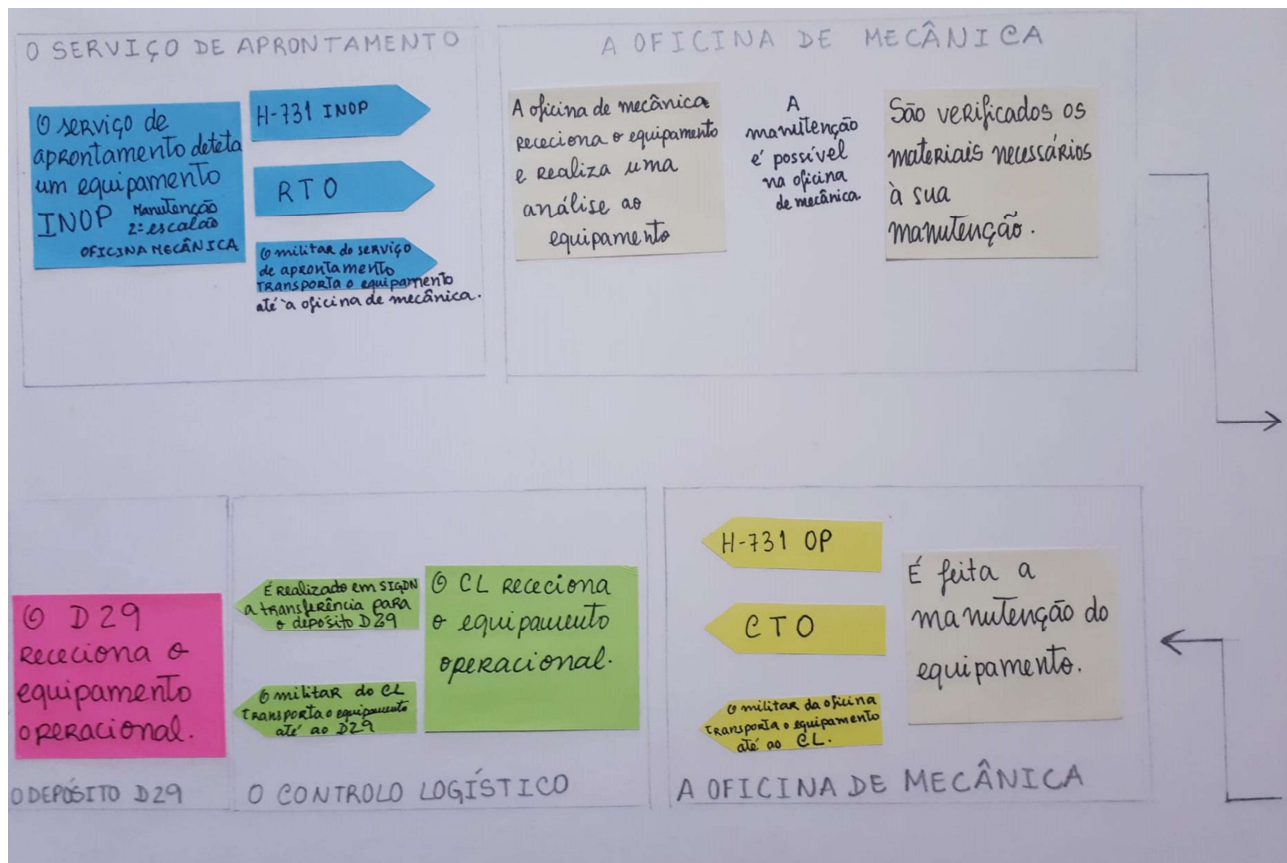 O SERVIÇO DE APRONTAMENTO
O serviço de
aprontamento deteta
um equipamento
INOP Manutenção
2º escalão
OFICINA MECÂNICA
H-731 INOP
RTO
O militar do serviço
de aprontamento
transporta o equipamento
até à oficina de mecânica.
A OFICINA DE MECÂNICA
A oficina de mecânica
receciona o equipamento
e realiza uma
análise ao
equipamento
A
manutenção
é possível
na oficina
de mecânica.
São verificados os
materiais necessários
à sua
manutenção.
O D29
receciona o
equipamento
operacional.
O DEPÓSITO D29
É realizado em SIGDN
a transferência para
o depósito D29
O militar do CL
transporta o equipamento
até ao D29
O CL receciona
o equipamento
operacional.
O CONTROLO LOGÍSTICO
H-731 OP
CTO
O militar da oficina
transporta o equipamento
até ao CL.
É feita a
manutenção do
equipamento.
A OFICINA DE MECÂNICA